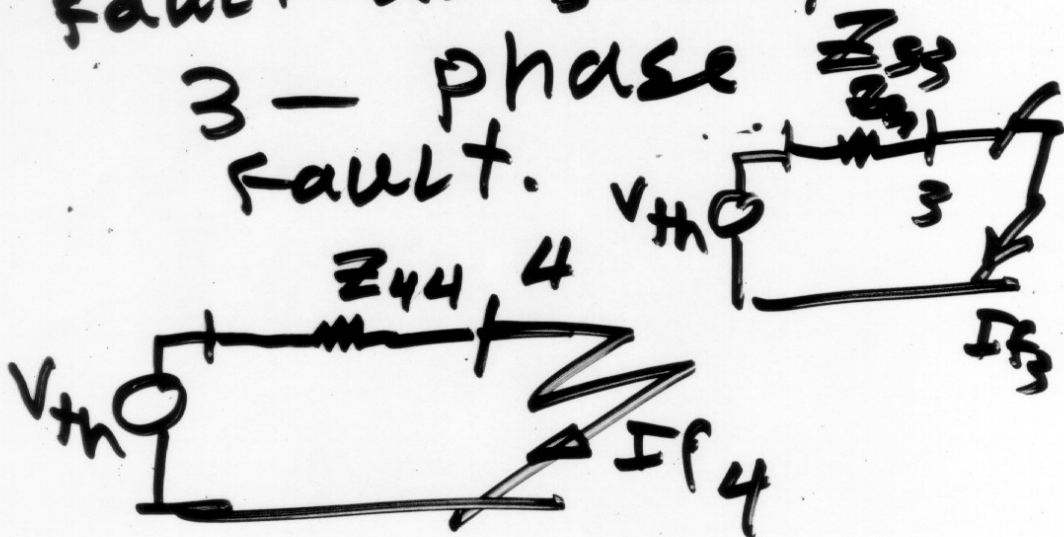 3 — phase
fault.
Z33
Vth
3
If3
Z44 4
Vth
If4